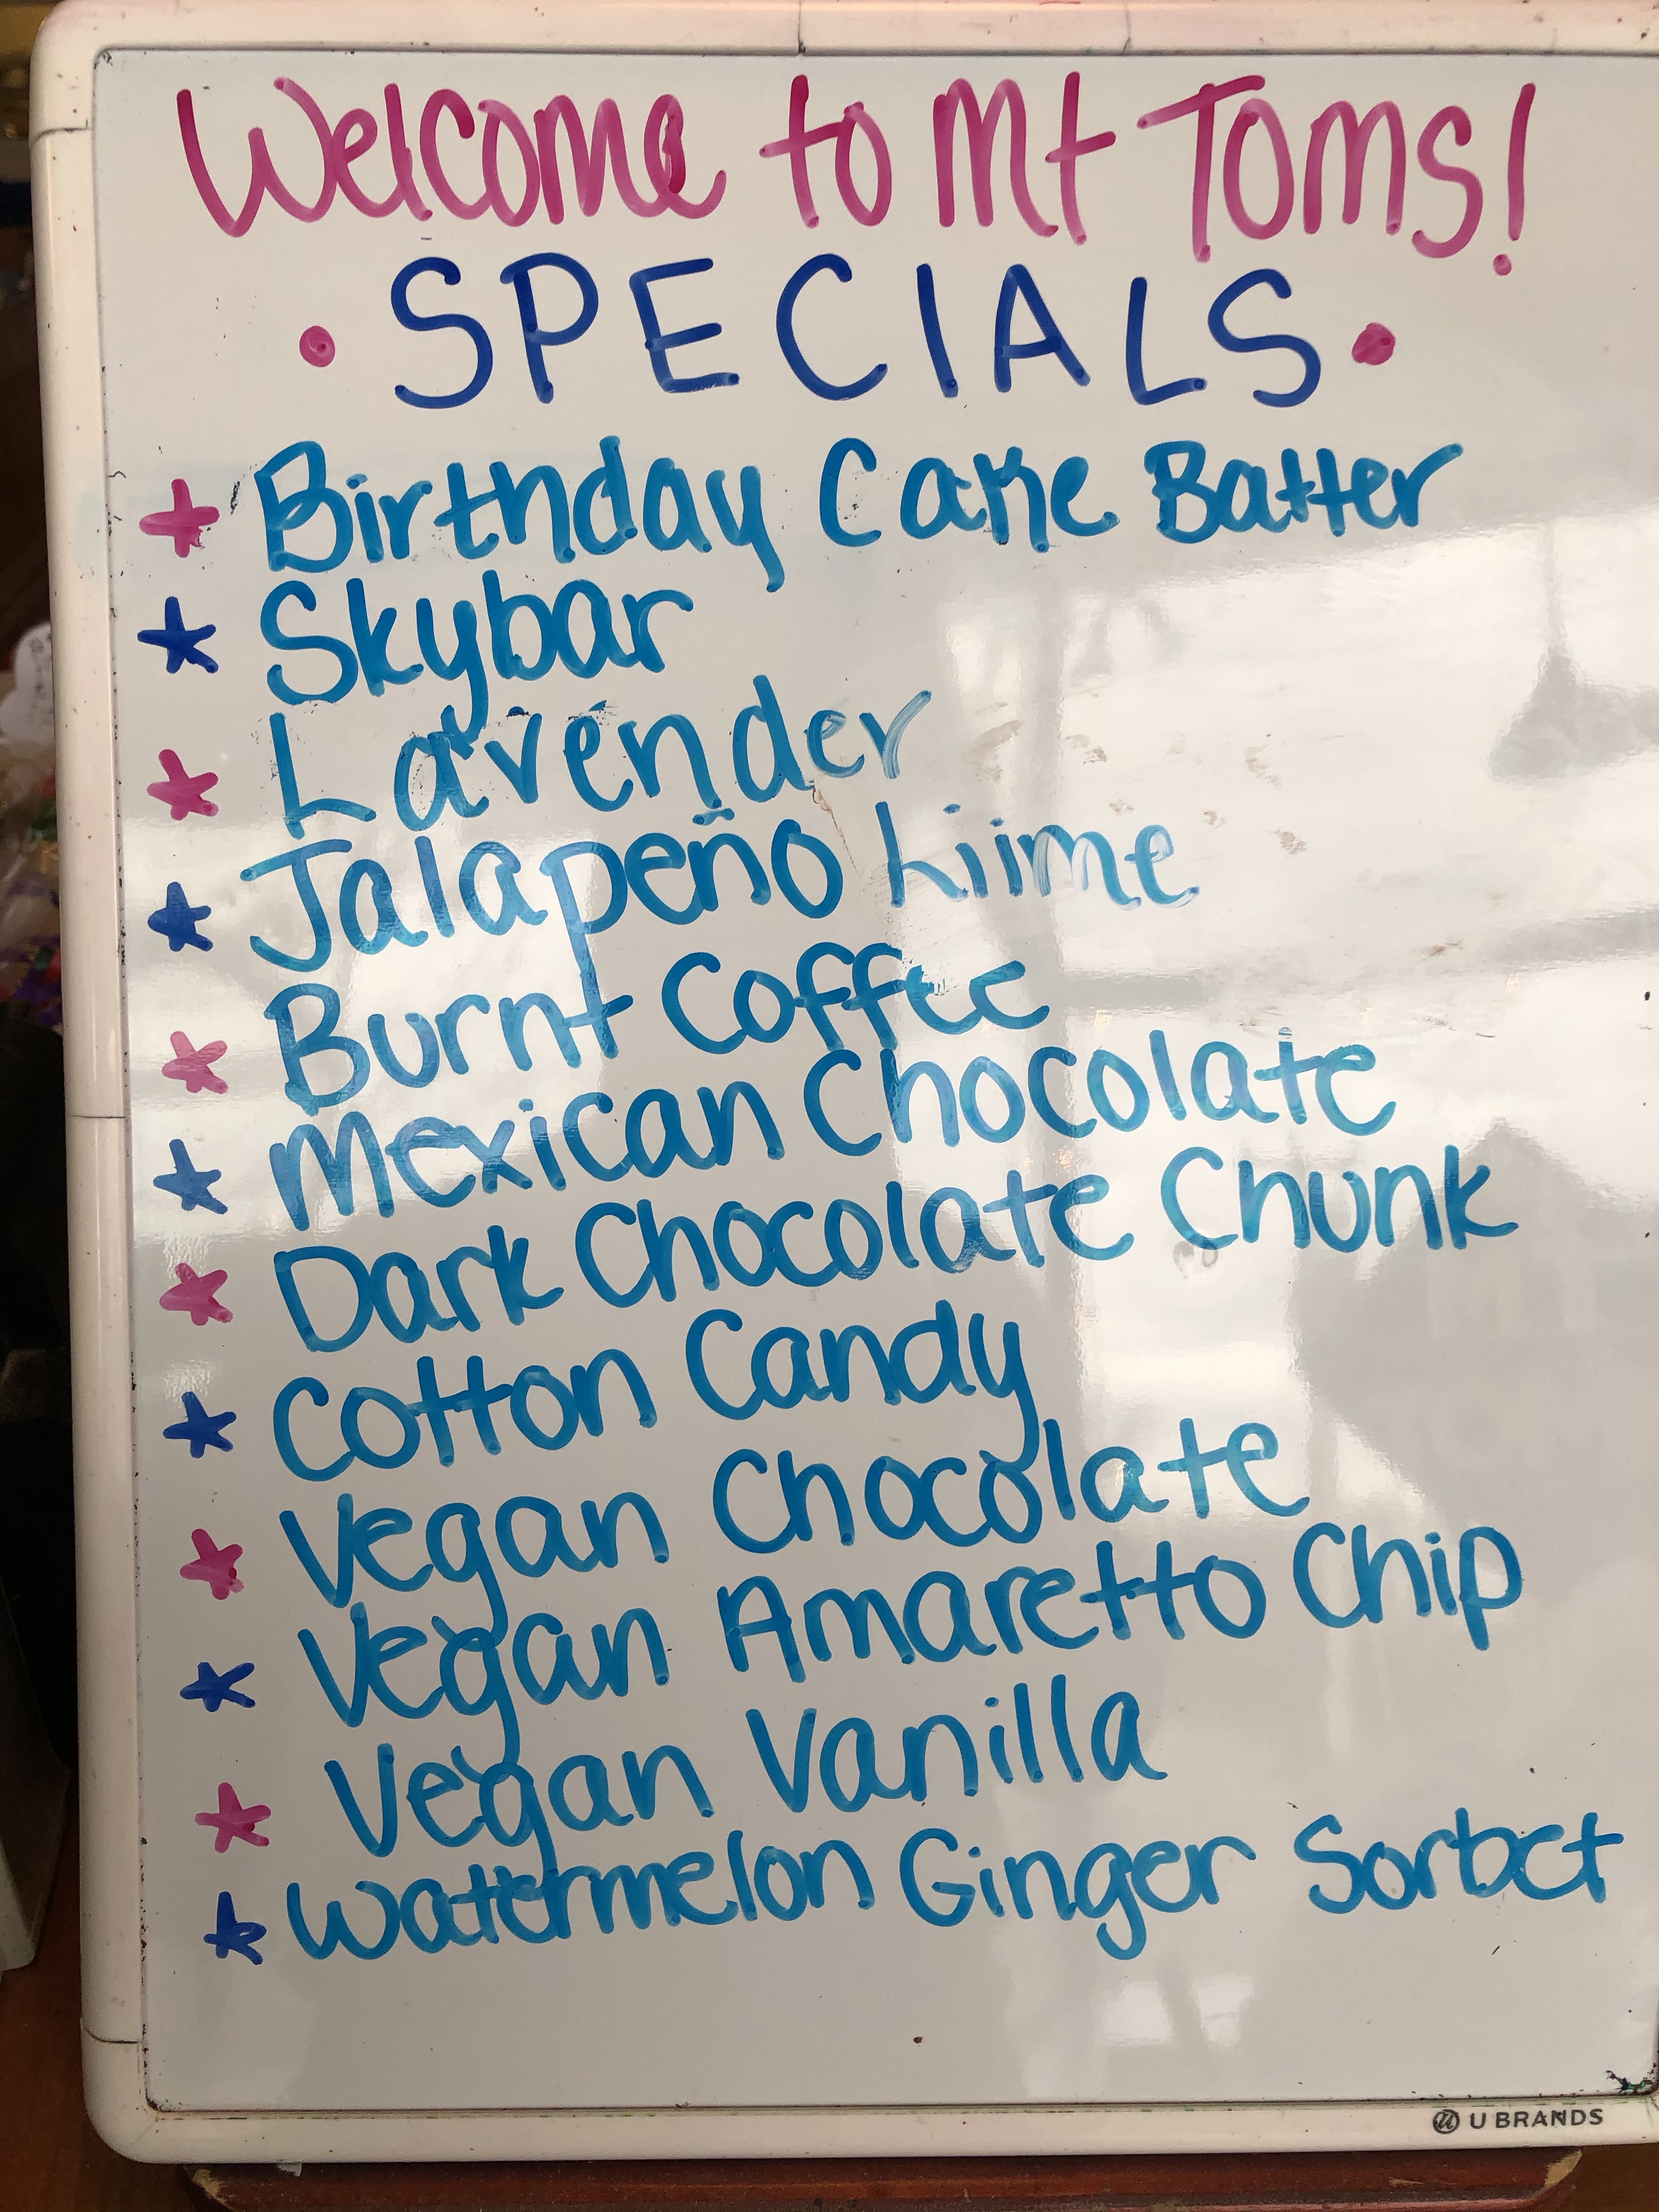 Welcome to Mt Toms!
• SPECIALS •
Birthday Cake Batter
Skybar
Lavender
Jalapeño Liime
Burnt Coffee
Mexican Chocolate
Dark Chocolate Chunk
Cotton Candy
Vegan Chocolate
Vegan Amaretto Chip
Vegan Vanilla
Watermelon Ginger Sorbet
U BRANDS